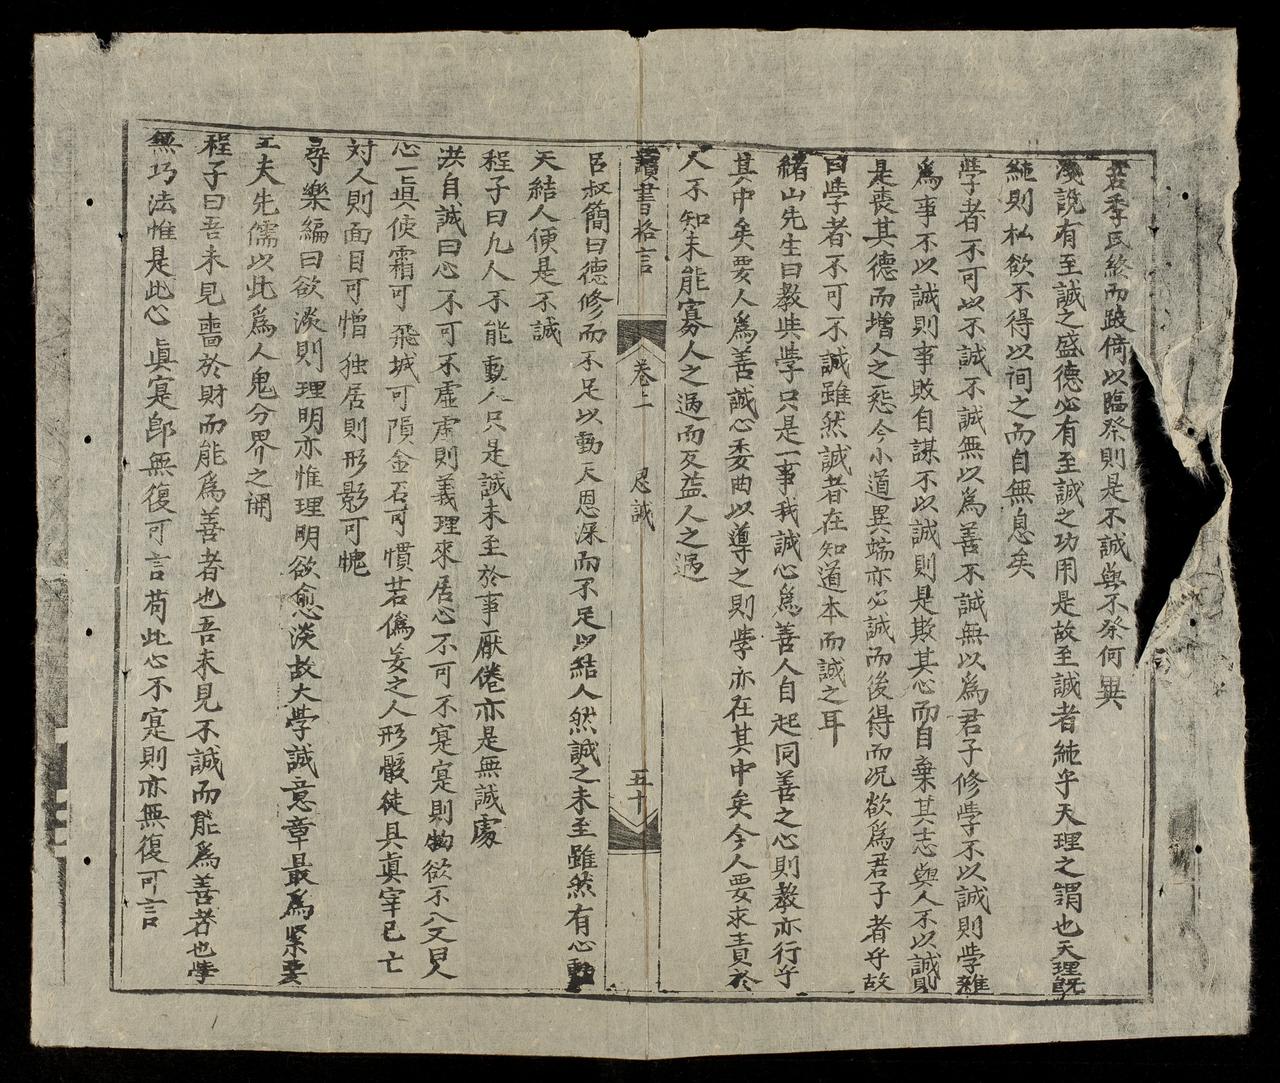 若季氏終而跛倚以臨祭則是不誠與不祭何異
淺說有至誠之盛德必有至誠之功用是故至誠者純乎天理之謂也天理旣
純則私欲不得以间之而自無息矣
學者不可以不誠不誠無以爲善不誠無以爲君子修學不以誠則學雜
爲事不以誠則事敗自謀不以誠則是欺其心而自棄其志與人不以誠則
是喪其德而增人之怨今小道異端亦必誠而後得而况欲爲君子者乎故
曰學者不可不誠雖然誠者在知道本而誠之耳
緒山先生曰教與學只是一事我誠心爲善人自起同善之心則教亦行乎
其中矣要人爲善誠心委曲以導之則學亦在其中矣今人要求責於
人不知未能寡人之過而反益人之過
讀書格言
卷二
忍誠
五十
呂叔簡曰德修而不足以動天恩深而不足以結人然誠之未至雖然有心動
天結人便是不誠
程子曰凡人不能動人只是誠未至於事厭倦亦是無誠處
洪自誠曰心不可不虛虛則義理來居心不可不寔寔則物欲不入又曰人
心一眞使霜可飛城可隕金石可慣若僞妄之人形骸徒具眞宰已亡
对人則面目可憎独居則形影可愧
尋樂編曰欲淡則理明亦惟理明欲愈淡故大學誠意章最爲緊要
工夫先儒以此爲人鬼分界之関
程子曰吾未見嗇於財而能爲善者也吾未見不誠而能爲善者也學
無巧法惟是此心眞寔郎無復可言苟此心不寔則亦無復可言